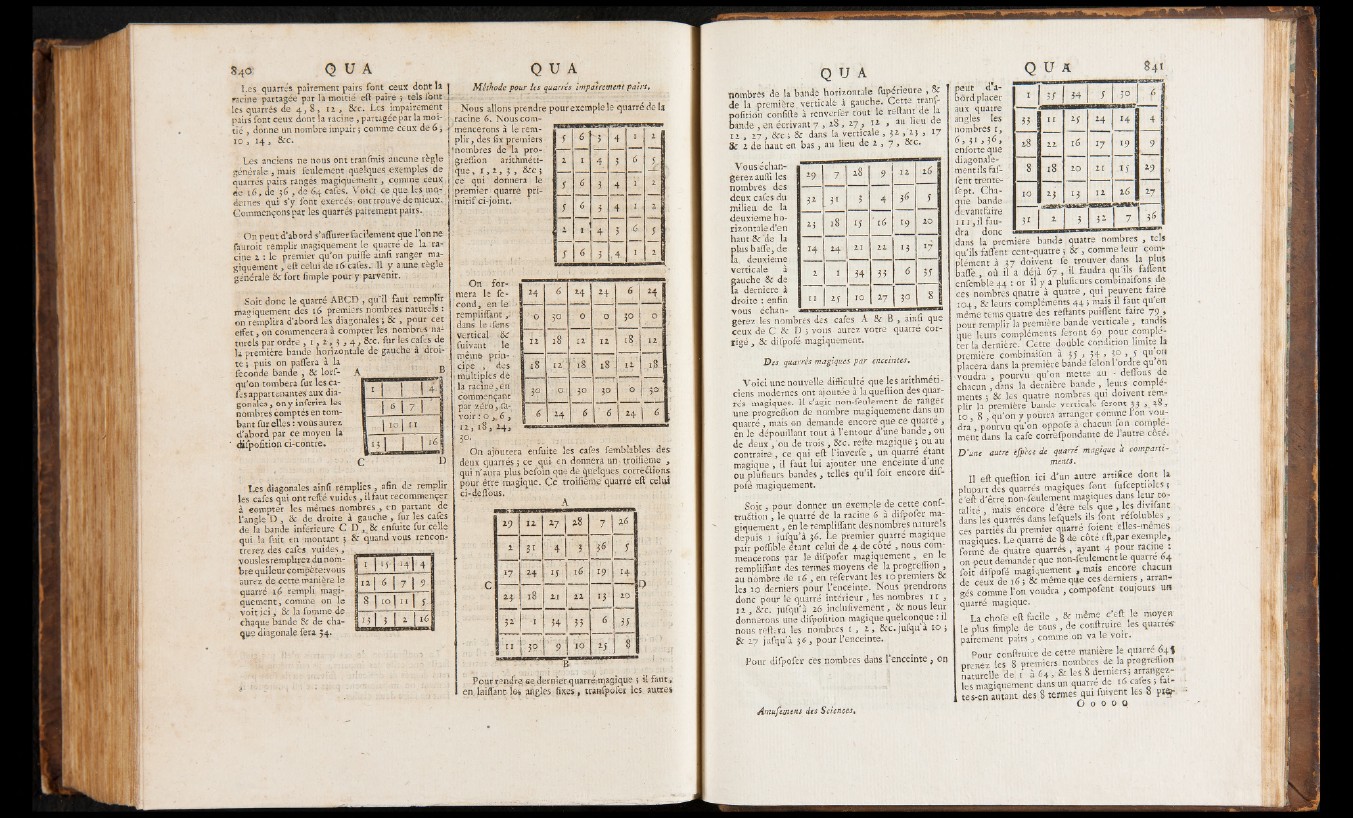 840
QUA
Les quarrés pairement pairs sont ceux dont la
racine partagée par la moitié est paire ; tels sont
les quarrés de 4, 8, 12, &c. Les impairement
pairs sont ceux dont la racine, partagée par la moi-
tié, donne un nombre impair ; comme ceux de 6 ;
10, 14, &c.
Les anciens ne nous ont transmis aucune règle
générale, mais seulement quelques exemples de
quarrés pairs rangés magiquement, comme ceux
de 16, de 36, de 64 cases. Voici ce que les mo-
dernes qui s'y sont exercés ont trouvé de mieux.
Commençons par les quarrés pairement pairs.
On peut d'abord s'assurer facilement que l'on ne
sauroit remplir magiquement le quarré de la ra-
cine 2 : le premier qu'on puisse ainsi ranger ma-
giquement, est celui de 16 cases. Il y a une règle
générale & fort simple pour y parvenir.
Soit donc le quarré ABCD, qu'il faut remplir
magiquement des 16 premiers nombres naturels :
on remplira d'abord les diagonales ; &, pour cet
effet, on commencera à compter les nombres na-
turels par ordre, 1, 2, 3, 4, &c. sur les cases de
la première bande horizontale de gauche à droi-
te ; puis on passera à la
seconde bande, & lors-
qu'on tombera sur les ca-
ses appartenantes aux dia-
gonales, on y inscrira les
nombres comptés en tom-
bant sur elles : vous aurez
d'abord par ce moyen la
disposition ci-contre.
A B
1 4
6 7
10 11
13 16
C D
Les diagonales ainsi remplies, afin de remplir
les cases qui ont resté vuides, il faut recommencer
à compter les mêmes nombres, en partant de
l'angle D, & de droite à gauche, sur les cases
de la bande inférieure C D, & ensuite sur celle
qui la suit en montant ; & quand vous rencon-
trerez des cases vuides,
vous les remplirez du nom-
bre qui leur compète : vous
aurez de cette manière le
quarré 16 rempli magi-
quement, comme on le
voit ici, & la somme de
chaque bande & de cha-
que diagonale sera 34.
1 15 14 4
12 6 7 9
8 10 11 5
13 3 2 16
QUA
Méthode pour les quarrés impairement pairs.
Nous allons prendre pour exemple le quarré de la
racine 6. Nous com-
mencerons à le rem-
plir, des six premiers
nombres de la pro-
gression arithméti-
que, 1, 2, 3, &c ;
ce qui donnera le
premier quarré pri-
mitif ci-joint.
5 6 3 4 1 2
2 1 4 3 6 5
5 6 3 4 1 2
5 6 3 4 1 2
2 1 4 3 6 5
5 6 3 4 1 2
On for-
mera le se-
cond, en le
remplissant,
dans le sens
vertical &
suivant le
même prin-
cipe, des
multiples de
la racine, en
commençant
par zéro, sa-
voir : 0, 6,
12, 18, 24,
30.
24 6 24 24 6 24
0 30 0 0 30 0
12 18 12 12 18 12
18 12 18 18 12 18
30 0 30 30 0 30
6 24 6 6 24 6
On ajoutera ensuite les cases semblables des
deux quarrés ; ce qui en donnera un troisième,
qui n'aura plus besoin que de quelques corrections
pour être magique. Ce troisième quarré est celui
ci-dessous.
A
29 12 27 28 7 26
2 31 4 3 36 5
17 24 15 16 19 14
C D
23 18 21 22 13 20
32 1 34 33 6 35
11 30 9 10 25 8
B
Pour rendre ce dernier quarré magique ; il faut,
en laissant les angles fixes, transposer les autres
QUA
nombres de la bande horizontale supérieure, &
de la première verticale à gauche. Cette trans-
position consiste à renverser tout le restant de la
bande, en écrivant 7, 28, 27, 12, au lieu de
12, 27, &c ; & dans la verticale, 32, 23, 17
& 2 de haut en bas, au lieu de 2, 7, &c.
Vous échan-
gerez aussi les
nombres des
deux cases du
milieu de la
deuxieme ho-
rizontale d'en
haut & de la
plus basse, de
la deuxieme
verticale à
gauche & de
la derniere à
droite : enfin
vous échan-
29 7 28 9 12 26
32 31 3 4 36 5
23 18 15 16 19 20
14 24 21 22 13 17
2 1 34 33 6 35
11 25 10 27 30 8
gerez les nombres des cases A & B, ainsi que
ceux de C & D ; vous aurez votre quarré cor-
rigé, & disposé magiquement.
Des quarrés magiques par enceintes.
Voici une nouvelle difficulté que les arithméti-
ciens modernes ont ajoutée à la question des quar-
rés magiques. Il s'agit non-seulement de ranger
une progression de nombre magiquement dans un
quarré, mais on demande encore que ce quarré,
en le dépouillant tout à l'entour d'une bande, ou
de deux, ou de trois, &c. reste magique ; ou au
contraire, ce qui est l'inverse, un quarré étant
magique, il faut lui ajouter une enceinte d'une
ou plusieurs bandes, telles qu'il soit encore dis-
posé magiquement.
Soit, pour donner un exemple de cette cons-
truction, le quarré de la racine 6 à disposer ma-
giquement, en le remplissant des nombres naturels
depuis 1 jusqu'à 36. Le premier quarré magique
pair possible étant celui de 4 de côté, nous com-
mencerons par le disposer magiquement, en le
remplissant des termes moyens de la progression,
au nombre de 16, en réservant les 10 premiers &
les 10 derniers pour l'enceinte. Nous prendrons
donc pour le quarré intérieur, les nombres 11,
12, &c. jusqu'à 26 inclusivement, & nous leur
donnerons une disposition magique quelconque : il
nous restera les nombres 1, 2, &c. jusqu'à 10 ;
& 27 jusqu'à 36, pour l'enceinte.
Pour disposer ces nombres dans l'enceinte, on
Amusemens des Sciences.
QUA
841
peut d'a-
bord placer
aux quatre
angles les
nombres 1,
6, 31, 36,
ensorte que
diagonale-
ment ils fas-
sent trente-
sept. Cha-
que bande
devant faire
111, il fau-
dra donc
1 35 34 5 30 6
33 11 25 24 14 4
28 22 16 17 19 9
8 18 20 21 15 29
10 23 13 12 26 27
31 2 3 32 7 36
dans la première bande quatre nombres, tels
qu'ils fassent cent-quatre ; &, comme leur com-
plément à 37 doivent se trouver dans la plus
basse, où il a déjà 67, il faudra qu'ils fassent
ensemble 44 : or il y a plusieurs combinaisons de
ces nombres quatre à quatre, qui peuvent faire
104, & leurs compléments 44 ; mais il faut qu'en
même tems quatre des restants puissent faire 79,
pour remplir la première bande verticale, tandis
que leurs compléments feront 69 pour complé-
ter la dernière. Cette double condition limite la
première combinaison à 35, 34, 30, 5 qu'on
placera dans la première bande selon l'ordre qu'on
voudra, pourvu qu'on mette au-dessous de
chacun, dans la dernière bande, leurs complé-
ments ; & les quatre nombres qui doivent rem-
plir la première bande verticale feront 33, 28,
10, 8, qu'on y pourra arranger comme l'on vou-
dra, pourvu qu'on oppose à chacun son complé-
ment dans la case correspondante de l'autre côté.
D'une autre espèce de quarré magique à comparti-
mens.
Il est question ici d'un autre artifice dont la
plupart des quarrés magiques sont susceptibles ;
c'est d'être non-seulement magiques dans leur to-
talité, mais encore d'être tels que, les divisant
dans les quarrés dans lesquels ils sont résolubles,
ces parties du premier quarré soient elles-mêmes
magiques. Le quarré de 8 de côté est, par exemple,
formé de quatre quarrés, ayant 4 pour racine :
on peut demander que non-seulement le quarré 64
soit disposé magiquement, mais encore chacun
de ceux de 16 ; & même que ces derniers, arran-
gés comme l'on voudra, composent toujours un
quarré magique.
La chose est facile, & même c'est le moyen
le plus simple de tous, de construire les quarrés
pairement pairs, comme on va le voir.
Pour construire de cette manière le quarré 64,
prenez les 8 premiers nombres de la progression
naturelle de 1 à 64, & les 8 derniers ; arrangez-
les magiquement dans un quarré de 16 cases ; fai-
tes-en autant des 8 termes qui suivent les 8 pre-
Ooooo